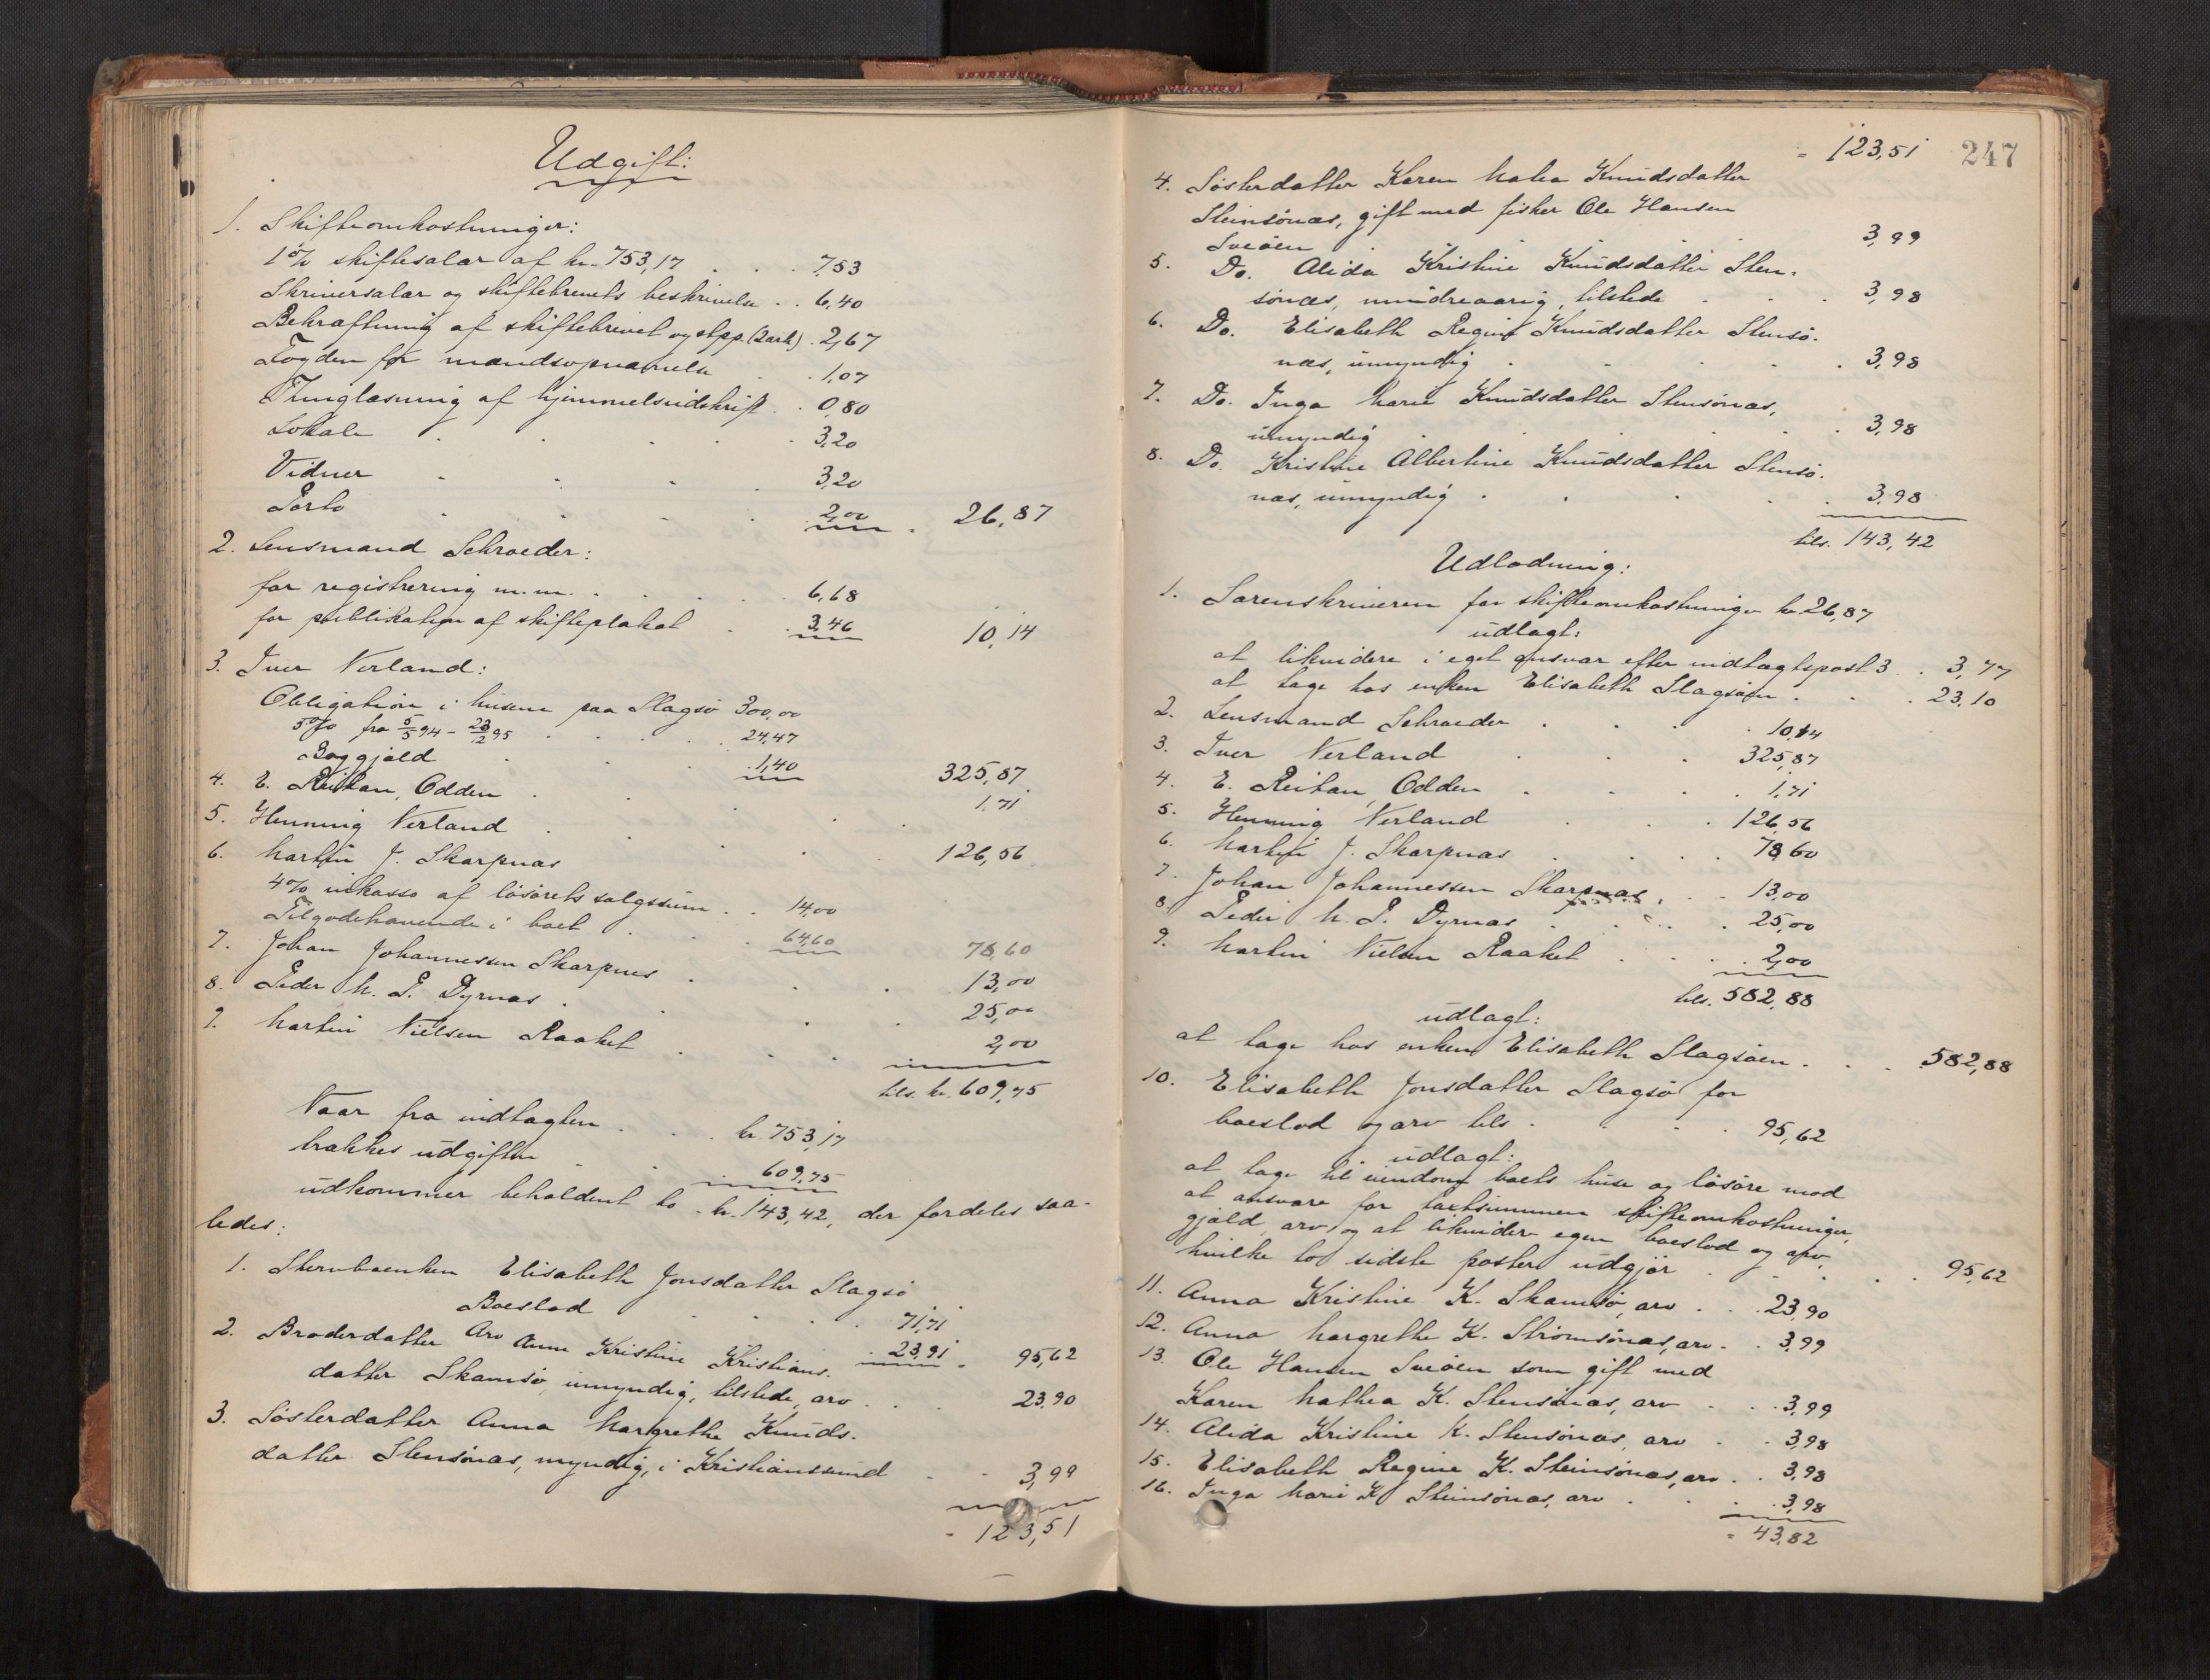 Udgift:
1. Skifteomkostninger:
1% skiftesalær af kr. 753,17 . . . 7,53
Skriversalær og skiftebrevets beskrivelse . . 6,40
Bekræftning af skiftebrevet og stpp. (2 ark) . 2,67
Fogden for mandsopnævnelse . . 1,07
Thinglæsning af hjemmelsudskrift . . 0,80
Lokale . . . . 3,20
Vidner . . . . 3,20
Porto . . . . 2,00 . 26,87
2. Lensmand Schrøeder:
for registrering m.m. . . . . 6,68
for publikation af skifteplakat . . 3,46 10,14
3. Iver Verland:
Obligation i husene paa Slagsø 300,00
5% fra 5/5 94 - 23/12 95 . . . . 24,47
Boggjæld . . . . 1,40 325,87
4. E. Reitan, Odden . . . . 1,71
5. Henning Verland . . . . 126,56
6. Martin J. Skarpnæs
4% inkasso af løsørets salgssum . . 14,00
Tilgodehavende i boet . . . 64,60 78,60
7. Johan Johannessen Skarpnes . . . 13,00
8. Peder M. P. Dyrnæs . . . . 25,00
9. Martin Nielsen Raaket . . . 2,00
tils. kr. 609,75
Naar fra indtægten . . . kr. 753,17
trækkes udgiften . . . 609,75
udkommer beholdent bo . kr. 143,42, der fordeles saa-
ledes:
1. Stervboenken Elisabeth Jonsdatter Slagsø
Boeslod . . . . 71,71
Arv . . . 23,91 . 95,62
2. Broderdatter Anne Kristine Kristians-
datter Skamsø, umyndig, tilstede, arv . . . 23,90
3. Søsterdatter Anna Margrethe Knuds-
datter Stensønæs, myndig, i Kristianssund . . 3,99
- 123,51
247
- 123,51
4. Søsterdatter Karen Mathea Knudsdatter
Steinsønæs, gift med fisker Ole Hansen
Sveøen . . . . 3,99
5. Do. Alida Kristine Knudsdatter Sten-
sønæs, mindreaarig, tilstede . . . 3,98
6. Do. Elisabeth Regine Knudsdatter Stensø-
næs, umyndig . . . . 3,98
7. Do. Inga Marie Knudsdatter Stensønæs,
umyndig . . . . 3,98
8. Do. Kristine Albertine Knudsdatter Stensø-
næs, umyndig . . . . 3,98
tils. 143,42
Udlodning:
1. Sorenskriveren for skifteomkostninger kr. 26,87
udlagt:
at likvidere i eget ansvar efter indtægtspost 3 . 3,77
at tage hos enken Elisabeth Slagsøen . . . 23,10
2. Lensmand Schrøeder . . . . 10,14
3. Iver Verland . . . 325,87
4. E. Reitan, Odden . . . . 1,71
5. Henning Verland . . . 126,56
6. Martin J. Skarpnæs . . . . 78,60
7. Johan Johannessen Skarpnæs . . . 13,00
8. Peder M. P. Dyrnæs . . . . 25,00
9. Martin Nielsen Raaket . . . . 2,00
tils. 582,88
udlagt:
at tage hos enken Elisabeth Slagsøen . . . 582,88
10. Elisabeth Jonsdatter Slagsø for
boeslod og arv tils . . . . 95,62
udlagt:
at tage til eiendom boets huse og løsøre mod
at ansvare for taxtsummen skifteomkostninger,
gjæld, arv og at likvidere egen boeslod og arv,
hvilke to sidste poster udgjør . . . . 95,62
11. Anna Kristine K. Skamsø, arv . . . 23,90
12. Anna Margrethe K. Strømsønæs, arv . . 3,99
13. Ole Hansen Sveøen som gift med
Karen Mathea K. Stensønæs, arv . . . 3,99
14. Alida Kristine K. Stensønæs, arv . . 3,98
15. Elisabeth Regine K. Steinsønæs, arv . . 3,98
16. Inga Marie K. Steinsønæs, arv . . . 3,98
- 43,82